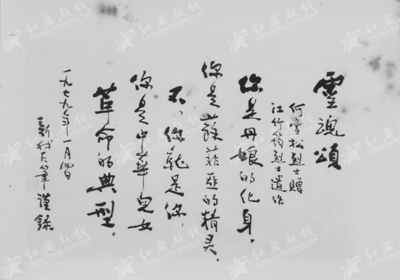 靈魂頌
何雪松烈士贈
江竹筠烈士遺作
你是丹娘的化身，
你是蘇菲亞的精灵，
不，你就是你，
你是中華兒女
革命的典型。
一九七九年一月四日
謹錄